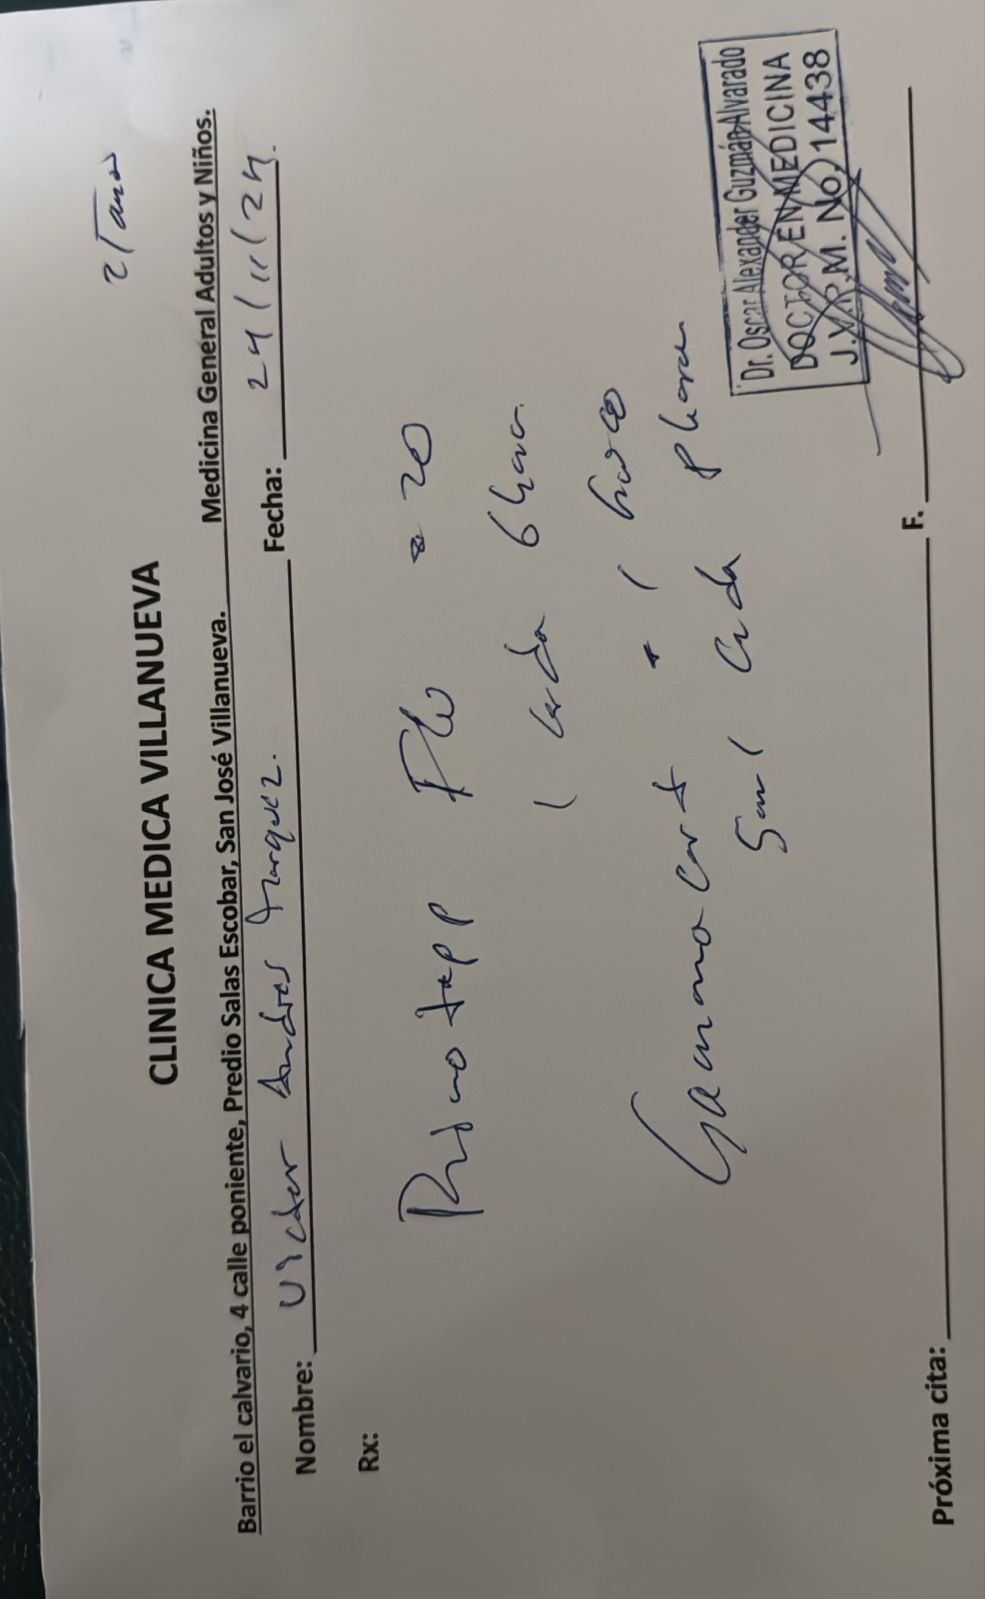 21 años
CLINICA MEDICA VILLANUEVA
Barrio el calvario, 4 calle poniente, Predio Salas Escobar, San José Villanueva. Medicina General Adultos y Niños.
Nombre: Victor Andres Marquez. Fecha: 24/11/24.
Rx:
Rinotapp Flu # 20
1 cada 6 horas.
# 1 frasco
5ml cada 8 horas
Dr. Oscar Alexander Guzmán Alvarado
DOCTOR EN MEDICINA
J.V.P.M. No. 14438
Próxima cita: F.